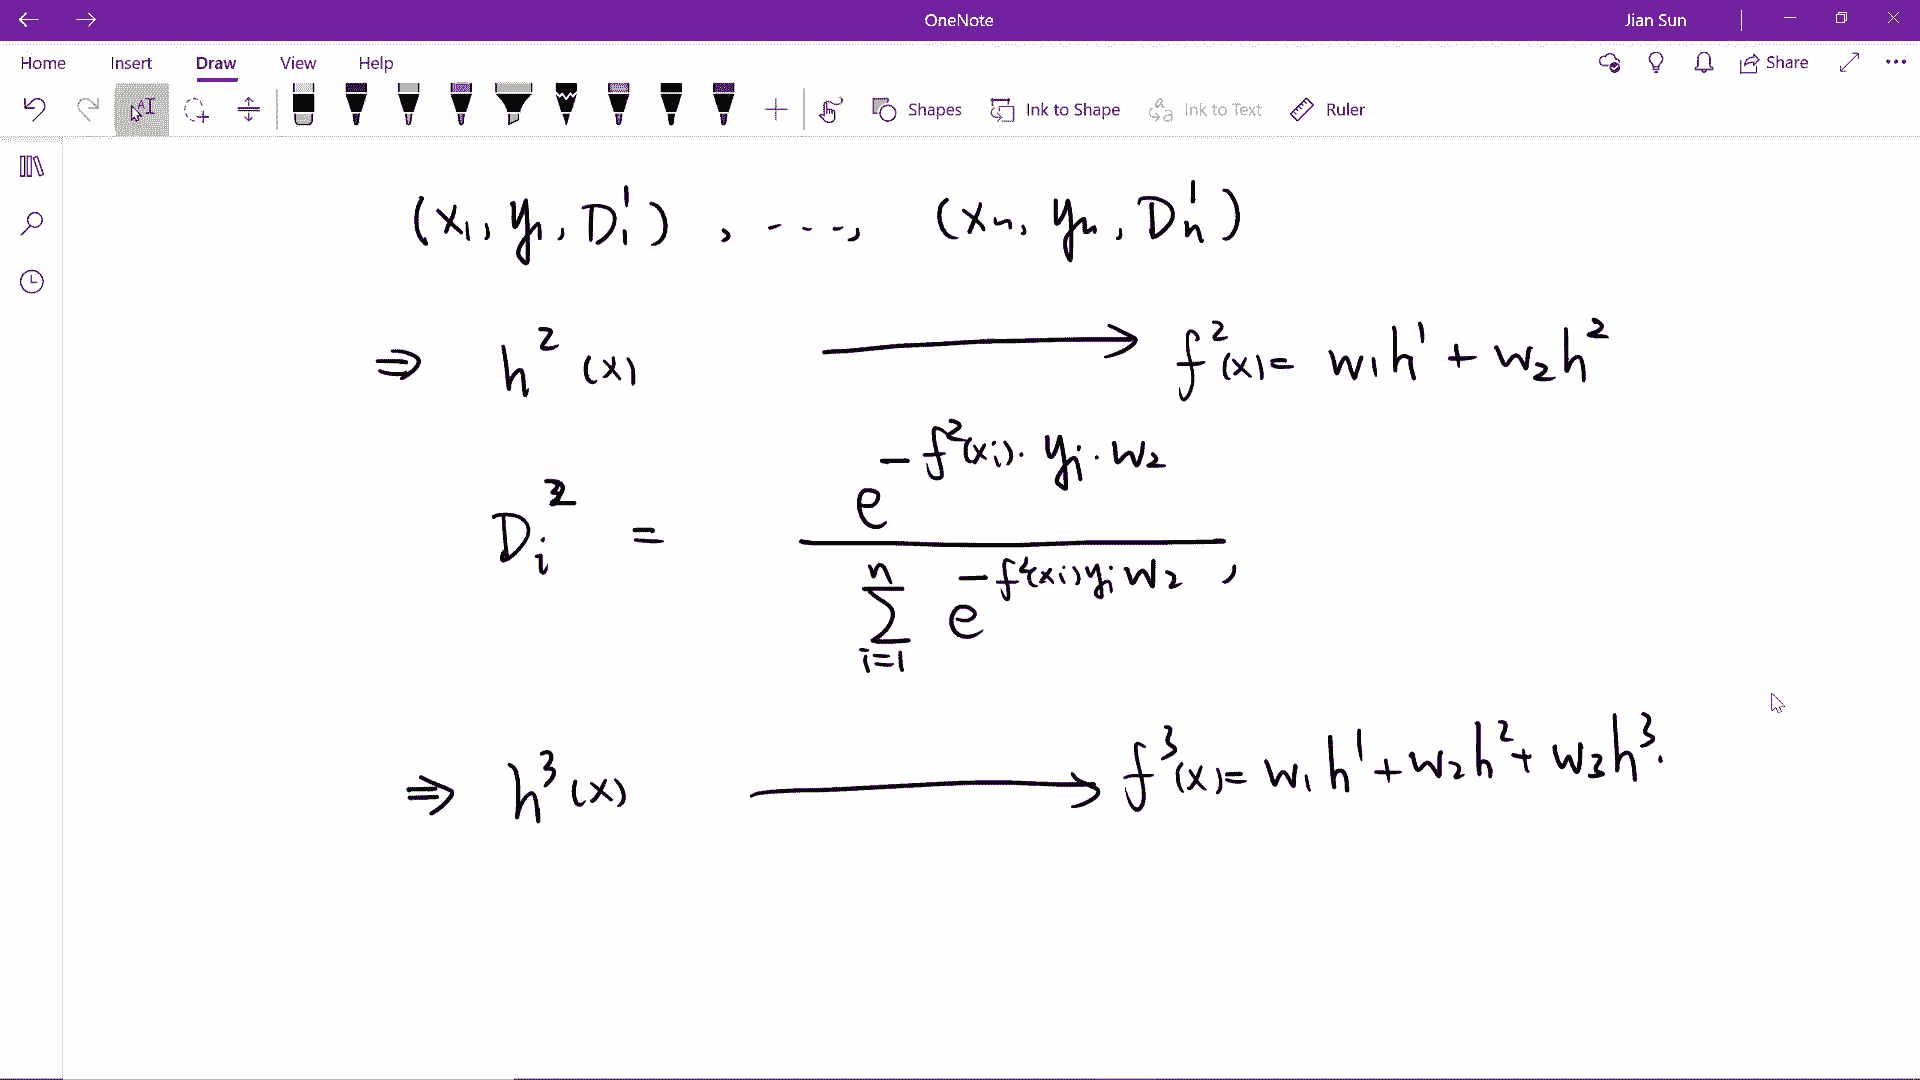 OneNote
Jian Sun
Home Insert Draw View Help Share
Shapes Ink to Shape Ink to Text Ruler
(x₁, y₁, D₁¹), ..., (xₙ, yₙ, Dₙ¹)
⇒ h²(x) ⟶ f²(x) = w₁h¹ + w₂h²
e^{-f²(xᵢ)·yᵢ·w₂}
Dᵢ² = ―――
∑_{i=1}^{n} e^{-f²(xᵢ)yᵢw₂},
⇒ h³(x) ⟶ f³(x) = w₁h¹ + w₂h² + w₃h³.